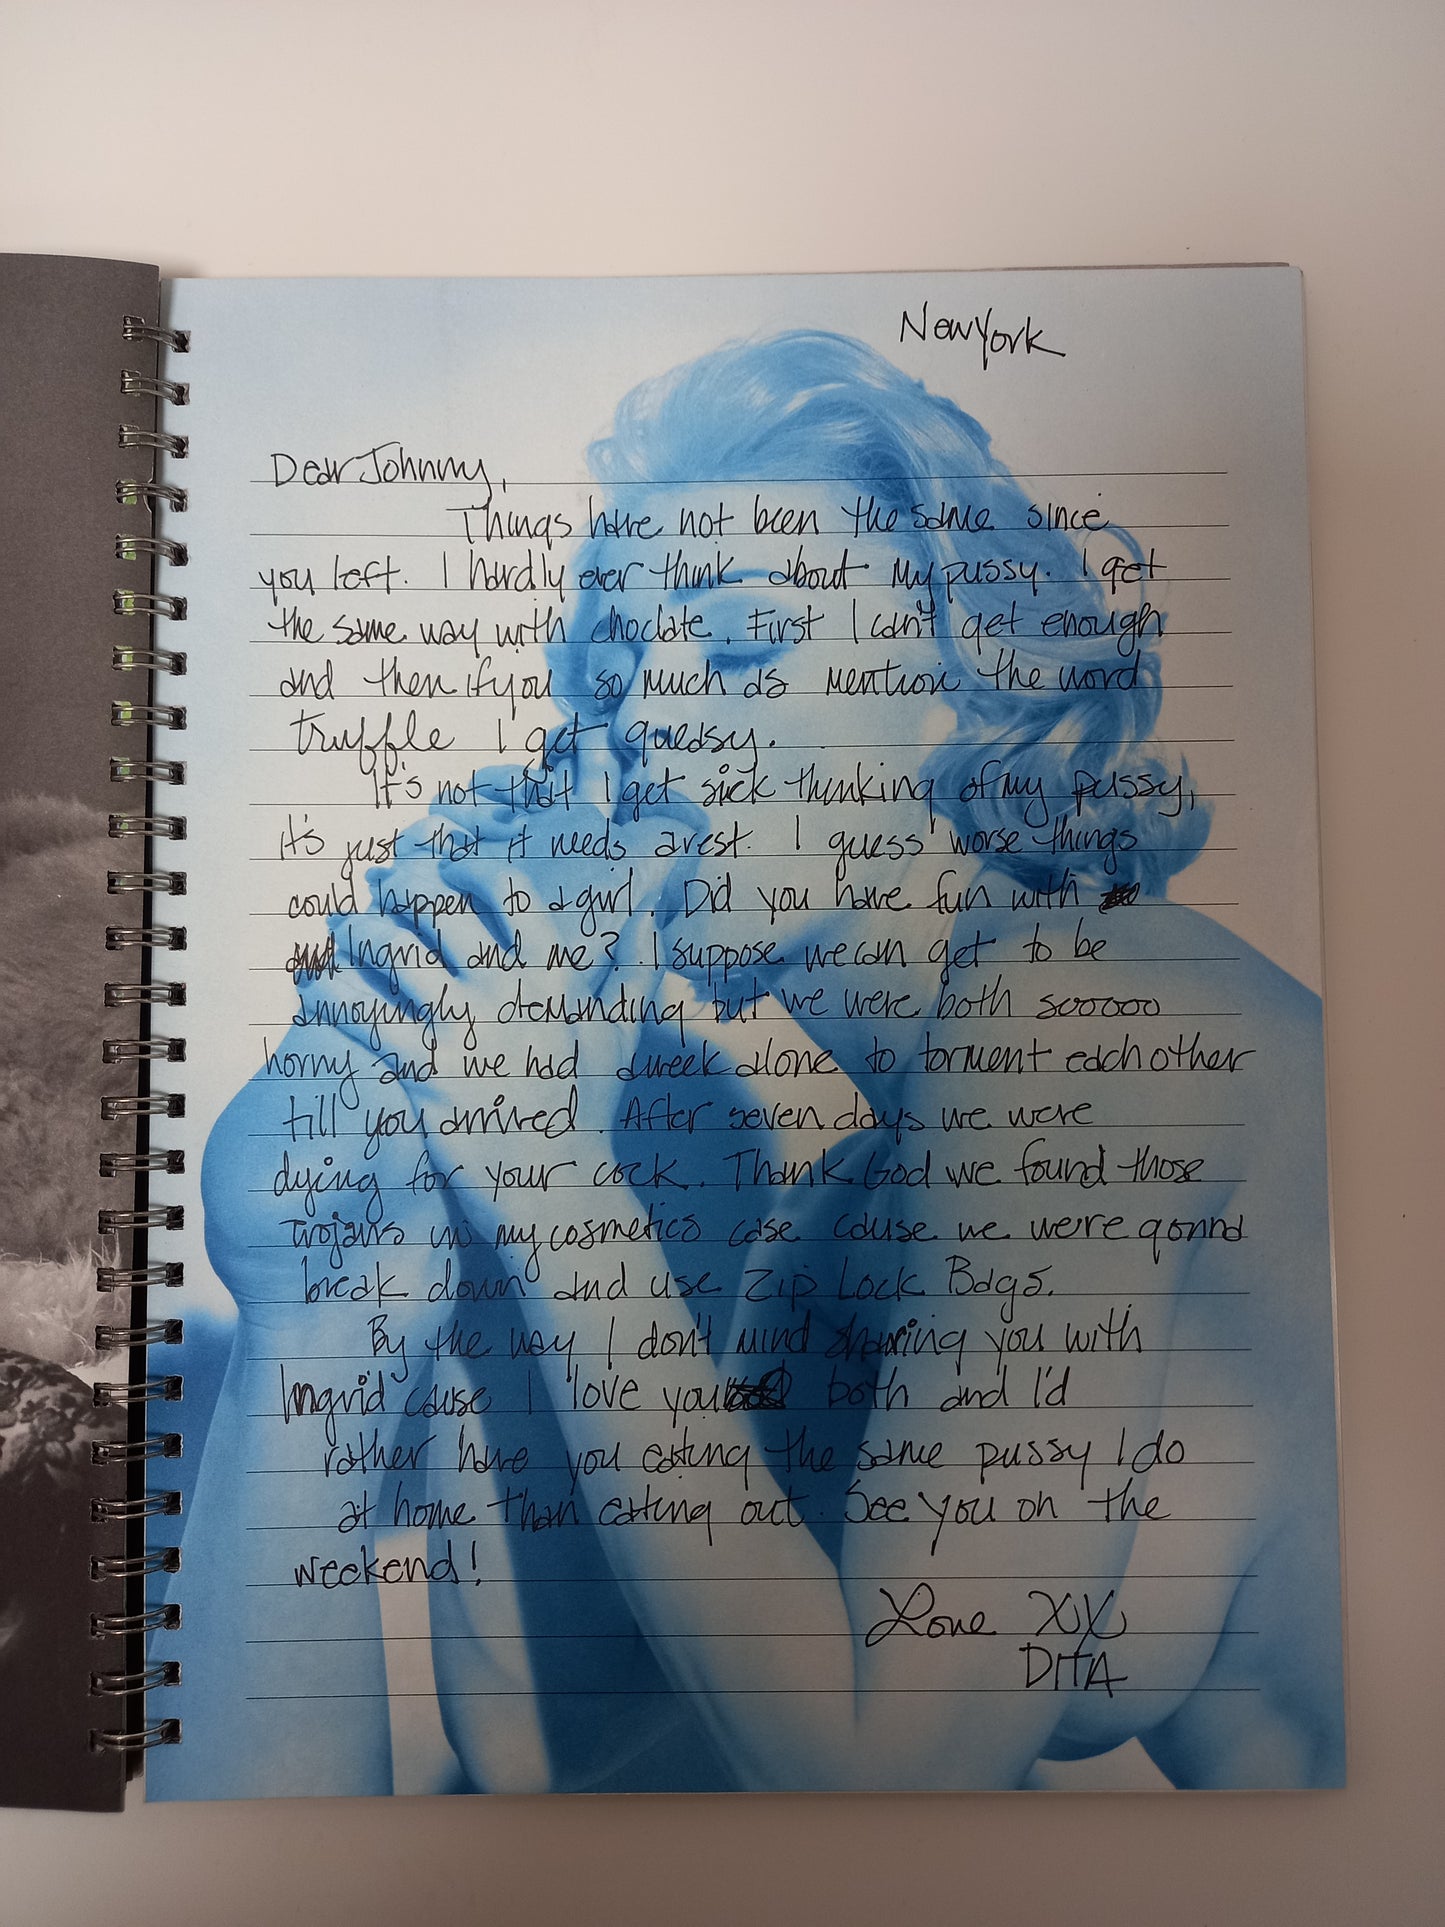 New York
Dear Johnny,
Things have not been the same since
you left. I hardly ever think about my pussy. I get
the same way with choclate. First I can't get enough
and then if you so much as mention the word
truffle I get queasy.
It's not that I get sick thinking of my pussy,
it's just that it needs a rest. I guess worse things
could happen to a girl. Did you have fun with
Ingrid and me? I suppose we can get to be
annoyingly demanding but we were both sooooo
horny and we had a week alone to torment each other
till you arrived. After seven days we were
dying for your cock. Thank God we found those
trojans in my cosmetics case cause we were gonna
break down and use Zip Lock Bags.
By the way I don't mind sharing you with
Ingrid 'cause I love you both and I'd
rather have you eating the same pussy I do
at home than eating out. See you on the
weekend!
Love XX
DITA